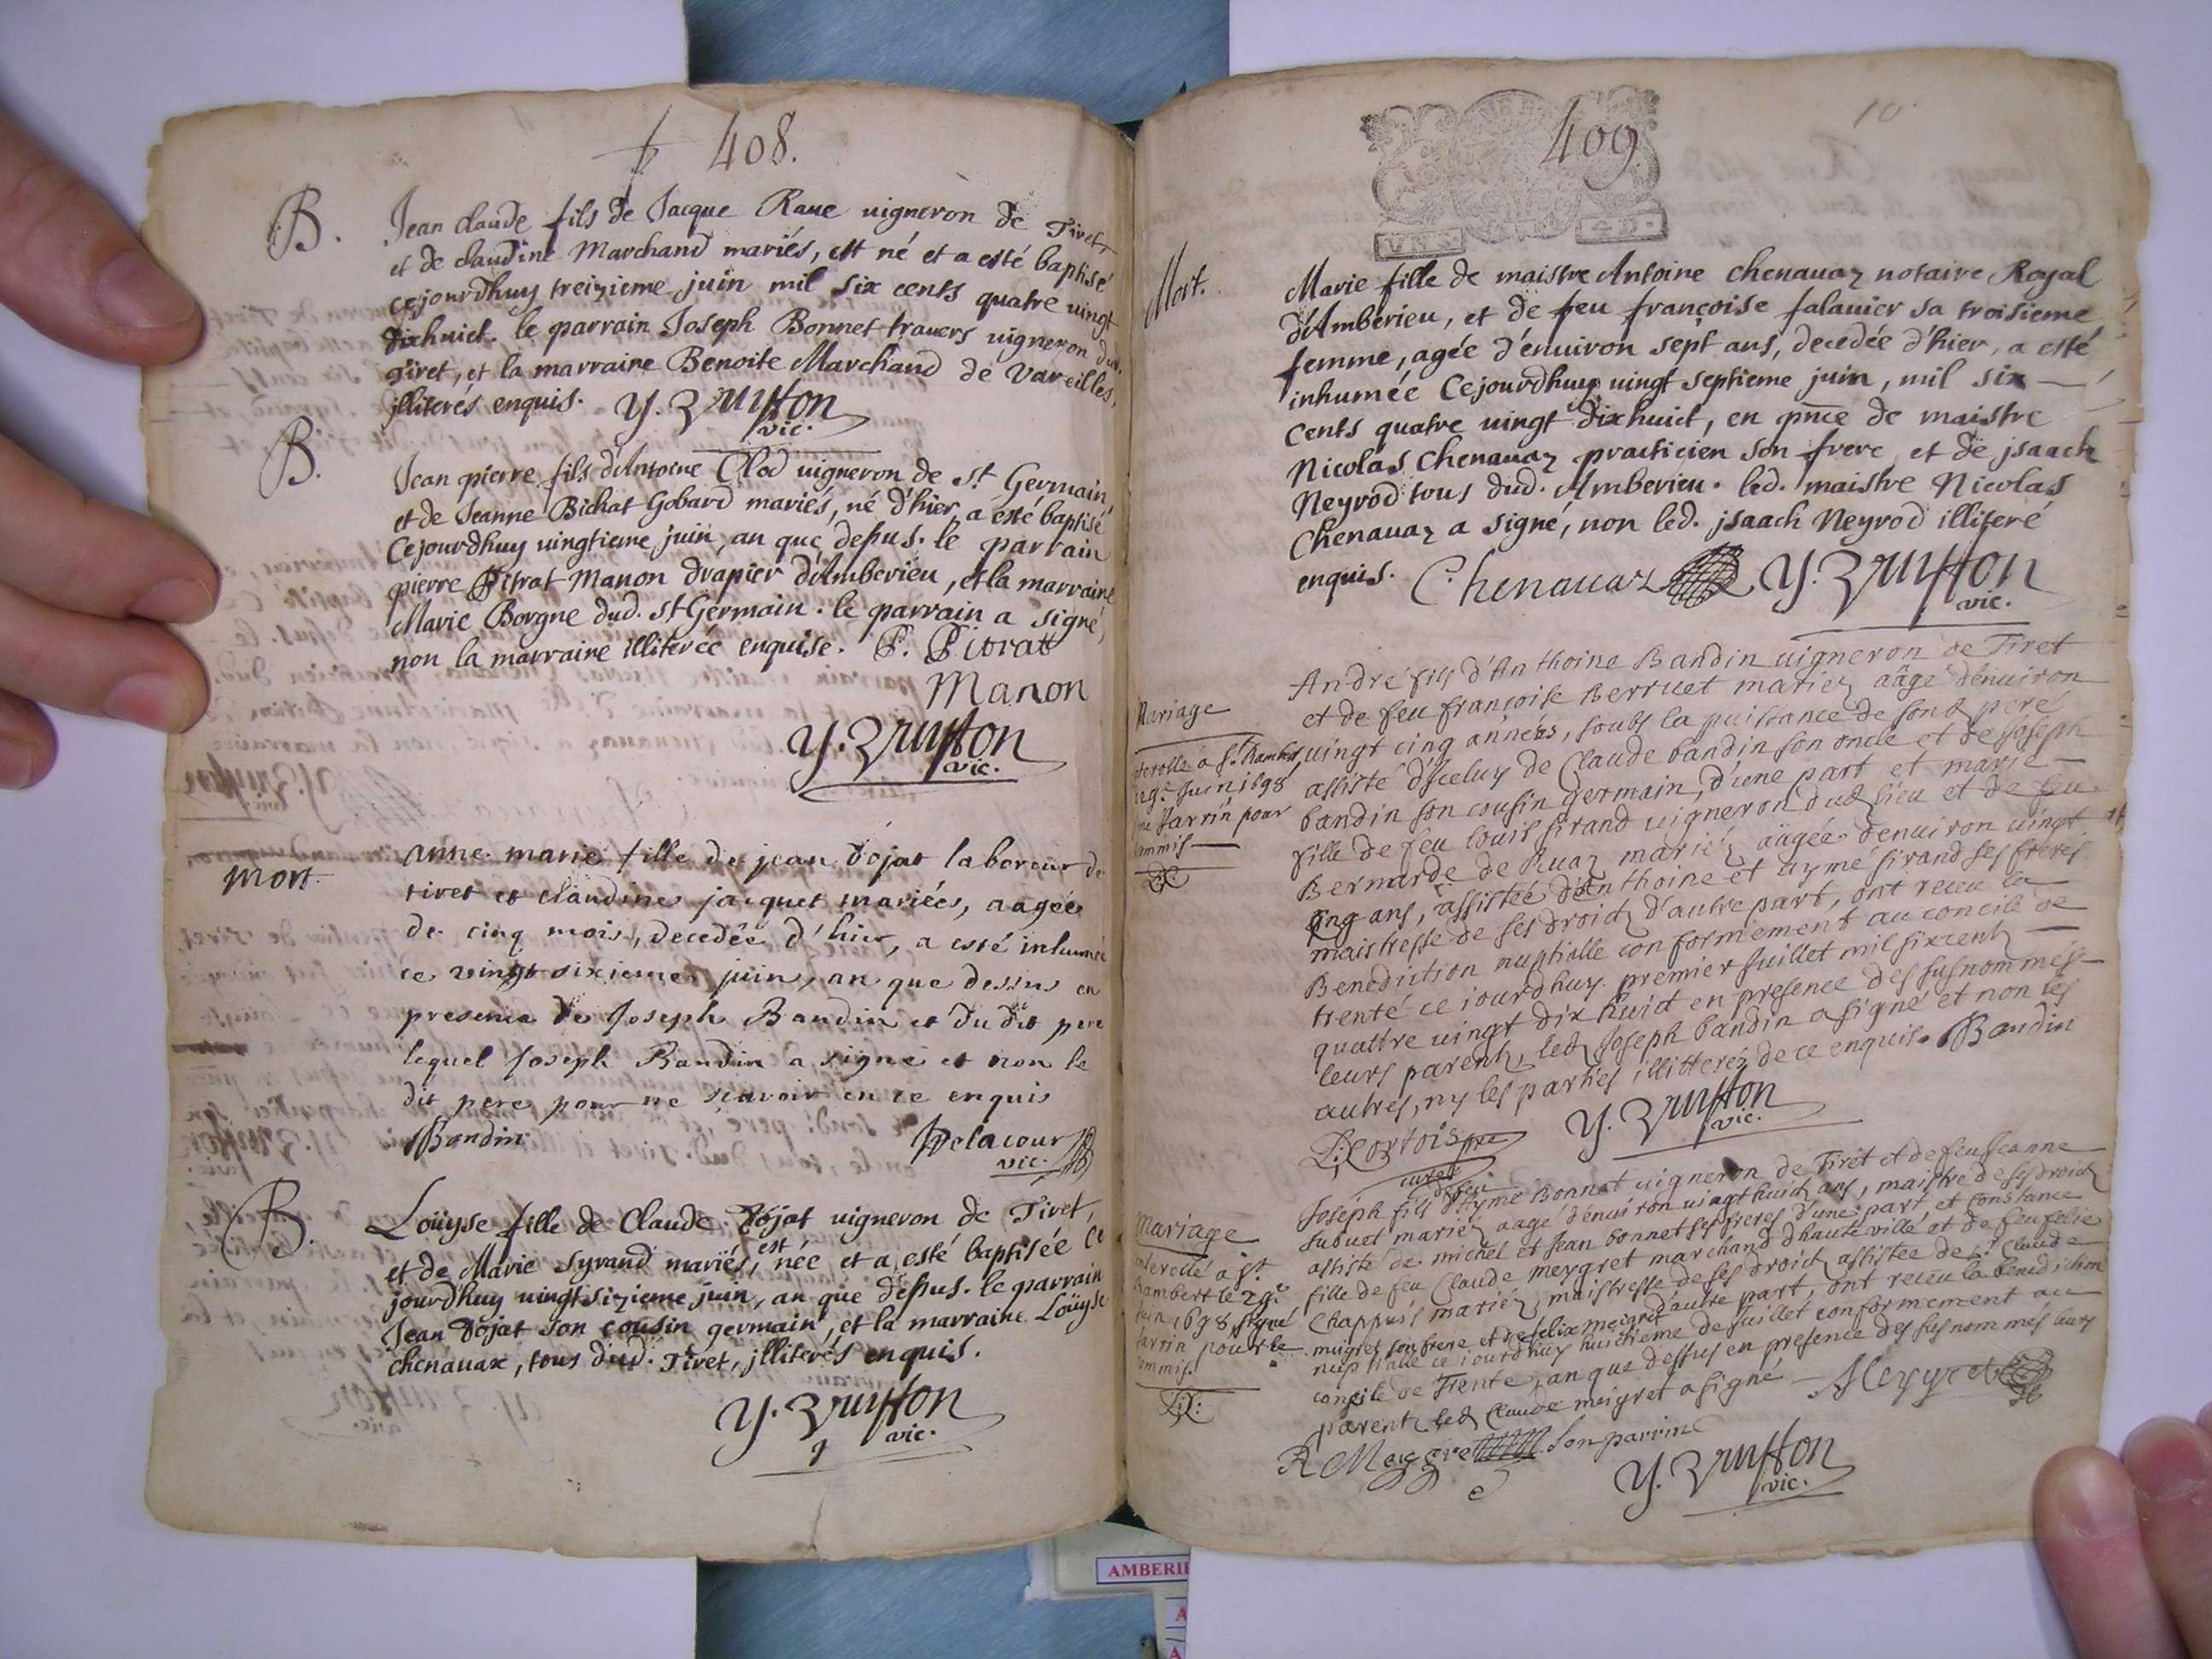 408.
B. Jean claude fils de Jacque Raue uigneron de Tiret,
et de claudine Marchand mariés, est né et a esté baptisé
cejourdhuy treizieme juin mil six cents quatre uingt
dixhuict. le parrain Joseph Bonnet trauers uigneron dud.
Tiret, et la marraine Benoite Marchand de Vareilles,
jlliterés enquis. vic.
B. Jean pierre fils d'Antoine Clod uigneron de St Germain,
et de Jeanne Bichat Gobard mariés, né d'hier, a esté baptisé
Cejourdhuy uingtieme juin, an que dessus. le parrain
pierre Pitrat Manon drapier d'Amberieu, et la marraine
Marie Borgne dud. St Germain. le parrain a signé,
non la marraine illiterée enquise. P. Pitrat
Manon
vic.
mort anne marie fille de jean Dojat laboreur de
tiret et claudine jacquet mariées, aagée
de cinq mois, decedée d'hier, a esté inhumée
ce vingt sixieme juin, an que dessus en
presence de Joseph Baudin et du dit pere
lequel Joseph Baudin a signe et non le
dit pere pour ne scavoir en ce enquis
JBaudin Delacour
vic.
B. Loüyse fille de Claude Dojat uigneron de Tiret,
et de Marie Syrand mariés, est née et a esté baptisée ce
jourdhuy uingtsixieme juin, an que dessus. le parrain
Jean Dojat son cousin germain, et la marraine Loüyse
chenauax, tous dud. Tiret, jlliterés enquis.
vic.
409
10
Mort. Marie fille de maistre Antoine chenauaz notaire Royal
d'Amberieu, et de feu françoise falauier sa troisieme
femme, agée d'enuiron sept ans, decedée d'hier, a esté
inhumée Cejourdhuy uingt septieme juin, mil six
Cents quatre uingt dixhuict, en pnce de maistre
Nicolas Chenauaz practicien son frere, et de jsaach
Neyrod tous dud. Amberieu. led. maistre Nicolas
Chenauaz a signé, non led. jsaach Neyrod illiteré
enquis. Chenauaz vic.
André fils d'Anthoine Baudin uigneron de Tiret
et de feu françoise Berruet mariez aâgé d'enuiron
Mariage
uingt cinq années, soubs la puissance de sond pere
assisté d'iceluy de Claude baudin son oncle et de Joseph
baudin son cousin germain, d'une part et marie
fille de feu louis sirand uigneron dud lieu et de feu
Bernarde de Ruaz mariéz aâgée denuiron uingt
cinq ans, assistée d'Anthoine et aymé sirand ses freres
maistresse de ses droicts d'autre part, ont receu la
Benediction nuptialle conformement au concile de
trenté ce iourdhuy premier Juillet mil sixcents
quattre uingt dix huict en presence des susnommes
leurs parents, led Joseph baudin a signé et non les
autres, ny les parties illitterés de ce enquis. JBaudin
juin 1698
Jarrin pour
commis
Cortois pre
curé
vic.
Joseph fils de feu Aymé Bonnet uigneron de Tiret et de feu Jeanne
subuet mariéz aagé d'enuiron uingthuict ans, maistre de ses droicts
Mariage
assisté de michel et Jean bonnet ses freres d'une part et Constance
fille de feu Claude meygret marchand d'hauteville et de feu felie
Chappuis mariéz, maistresse de ses droicts assistée de Sr Claude
meigret son frere et de felix meigret d'autre part, ont receu la benediction
nuptialle ce iourdhuy huictieme de Juillet conformement au
concile de Trente, an que dessus en presence des susnommés leurs
parents led Claude meigret a signé Meygret
juin 1698 signé
Jarrin pour le
commis.
R Meygret son parrin
vic.
AMBERI